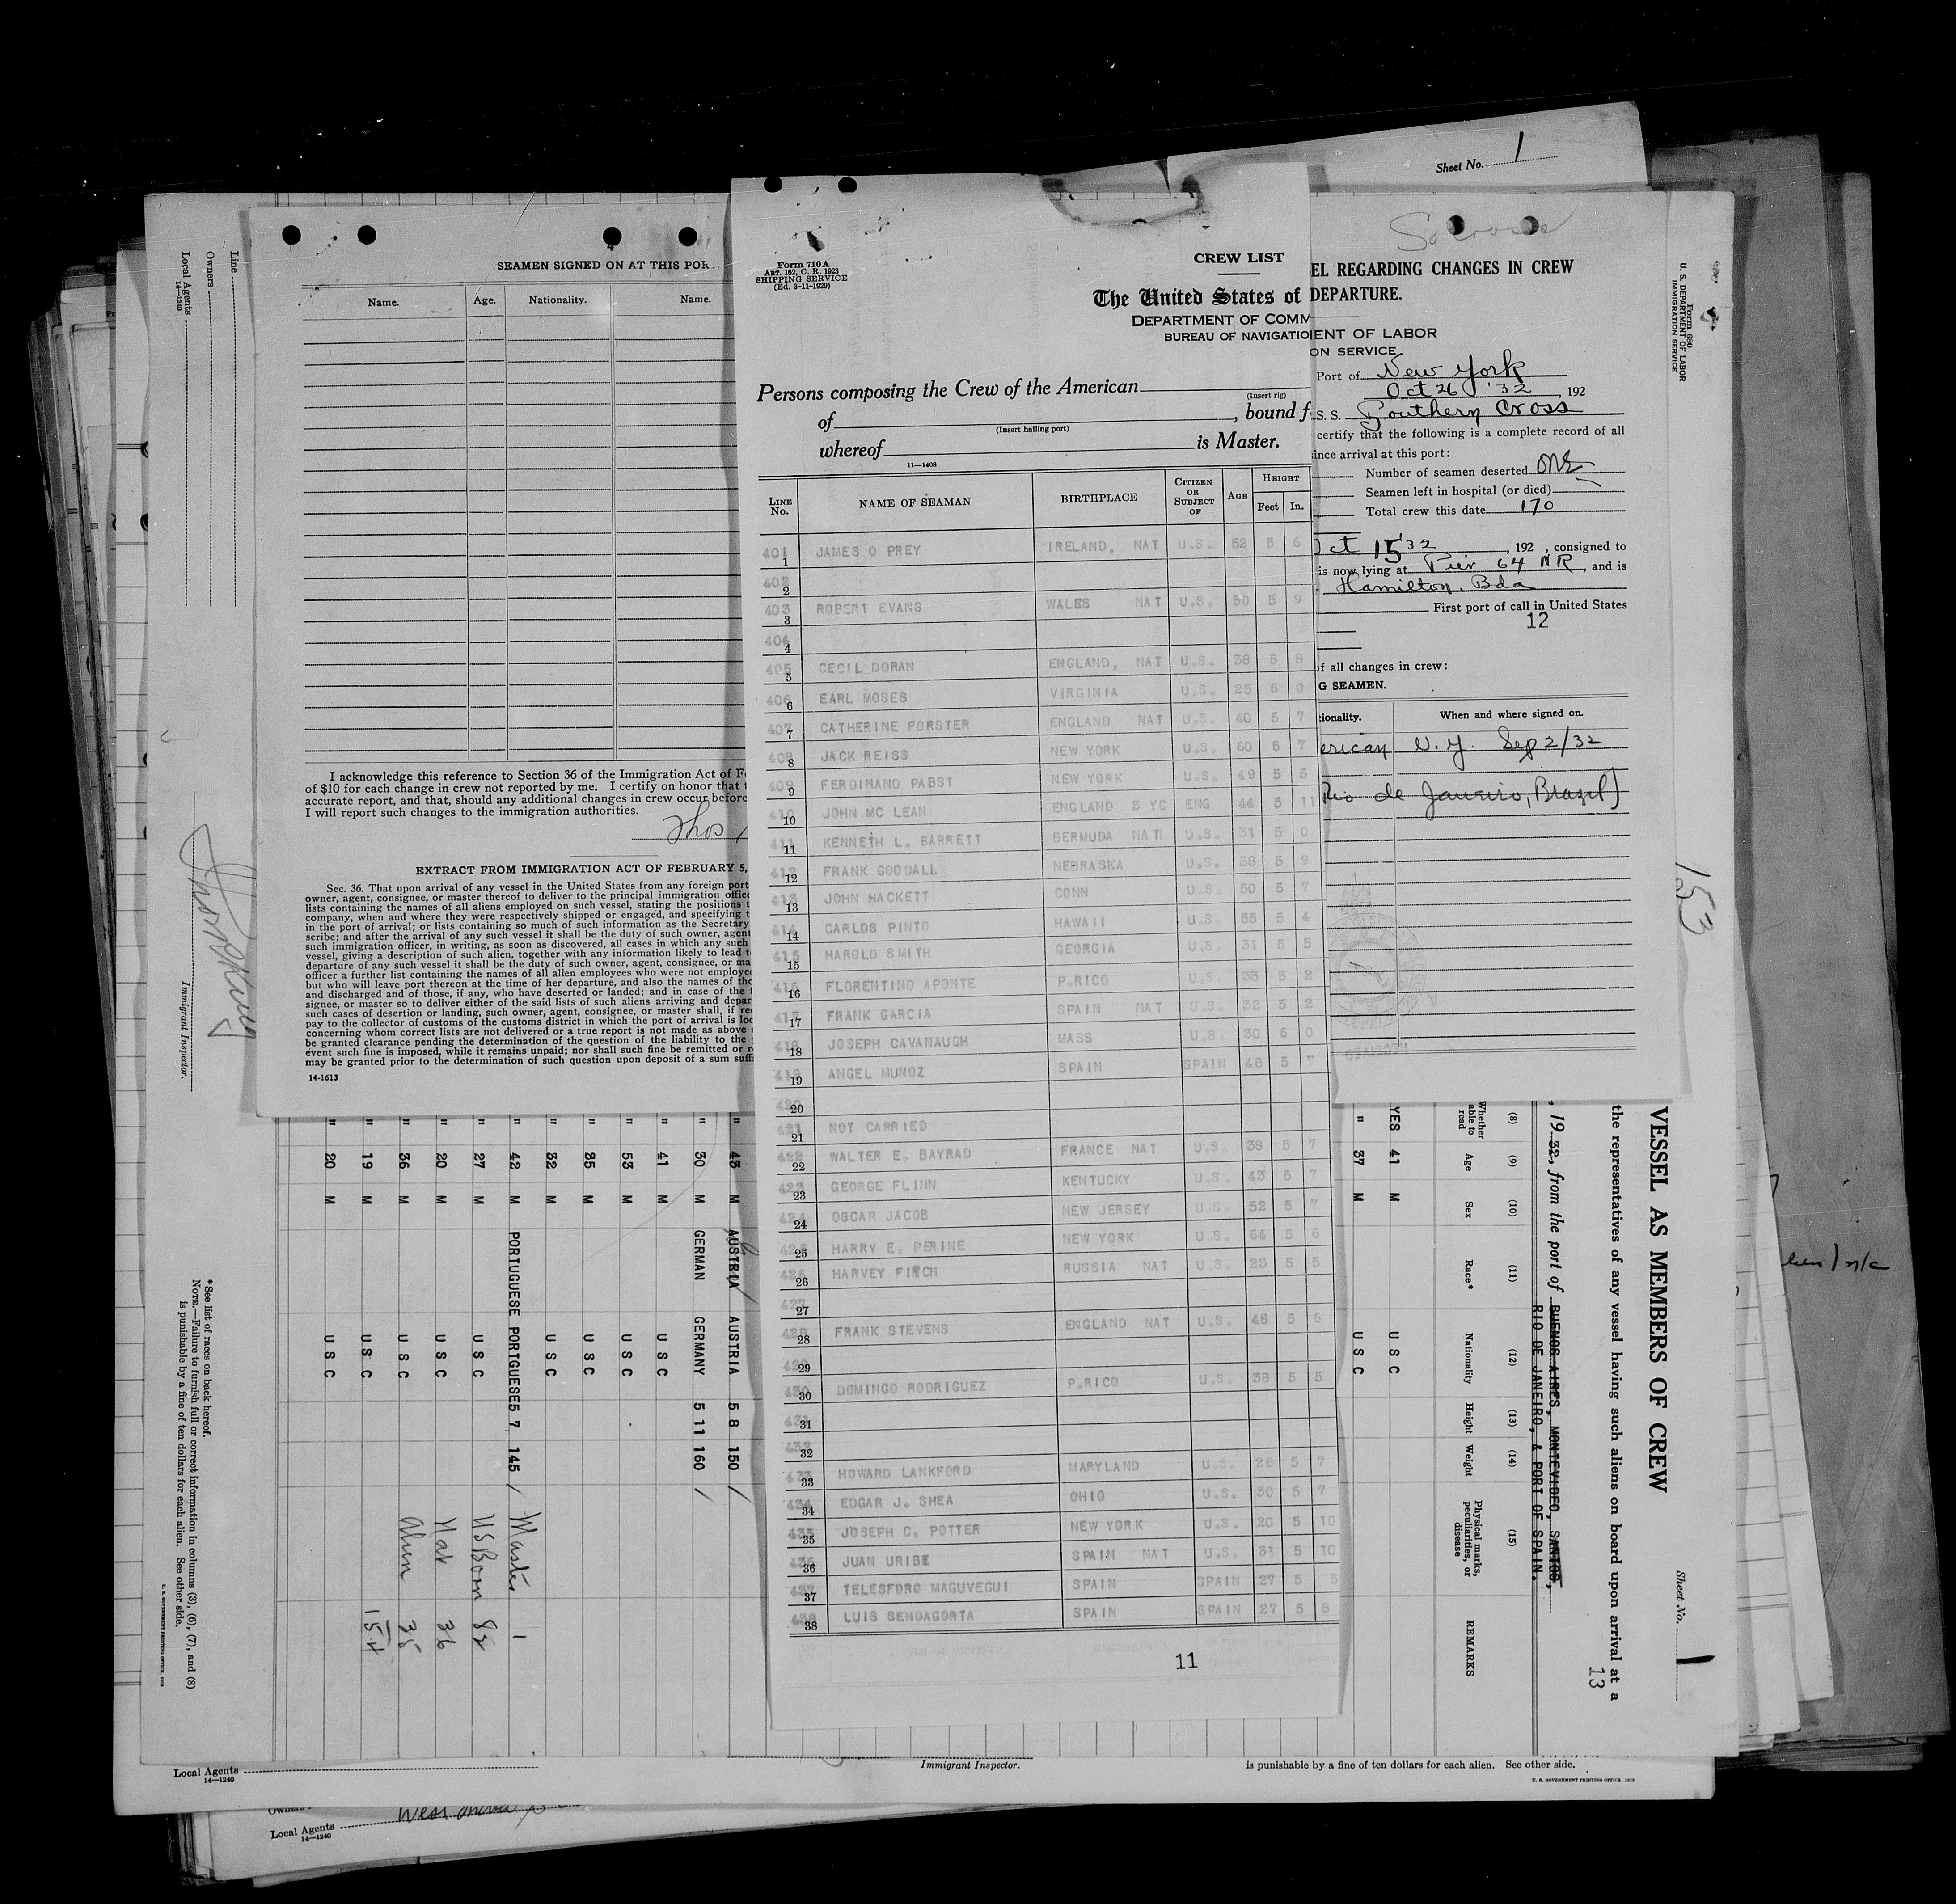 Sheet No. 1
4
SEAMEN SIGNED ON AT THIS POR
Name. Age. Nationality. Name.
I acknowledge this reference to Section 36 of the Immigration Act of
of $10 for each change in crew not reported by me. I certify on honor that
accurate report, and that, should any additional changes in crew occur before
I will report such changes to the immigration authorities.
Thos
EXTRACT FROM IMMIGRATION ACT OF FEBRUARY 5,
Sec. 36. That upon arrival of any vessel in the United States from any foreign port
owner, agent, consignee, or master thereof to deliver to the principal immigration
lists containing the names of all aliens employed on such vessel, stating the positions
company, when and where they were respectively shipped or engaged, and specifying
in the port of arrival; or lists containing so much of such information as the Secretary
scribe; and after the arrival of any such vessel it shall be the duty of such owner, agent
such immigration officer, in writing, as soon as discovered, all cases in which any such
vessel, giving a description of such alien, together with any information likely to lead
departure of any such vessel it shall be the duty of such owner, agent, consignee, or
officer a further list containing the names of all alien employees who were not
but who will leave port thereon at the time of her departure, and also the names of
and discharged and of those, if any, who have deserted or landed; and in case of the
signee, or master so to deliver either of the said lists of such aliens arriving and
such cases of desertion or landing, such owner, agent, consignee, or master shall, if
pay to the collector of customs of the customs district in which the port of arrival is
concerning whom correct lists are not delivered or a true report is not made as above
be granted clearance pending the determination of the question of the liability to the
event such fine is imposed, while it remains unpaid; nor shall such fine be remitted or
may be granted prior to the determination of such question upon deposit of a sum
14-1613
Form 710 A
ART. 162, C. R. 1923
SHIPPING SERVICE
(Ed. 3-11-1929)
CREW LIST
The United States of
DEPARTMENT OF COMM
BUREAU OF NAVIGATIO
Persons composing the Crew of the American
(Insert rig)
of , bound f
(Insert hailing port)
whereof is Master.
11—1408
LINE No. NAME OF SEAMAN BIRTHPLACE CITIZEN OR SUBJECT OF AGE HEIGHT Feet In.
401 1 JAMES O PREY IRELAND, NAT U.S. 52 5 6
402 2
403 3 ROBERT EVANS WALES NAT U.S. 50 5 9
404 4
405 5 CECIL DORAN ENGLAND, NAT U.S. 38 5 8
406 6 EARL MOSES VIRGINIA U.S. 25 6 0
407 7 CATHERINE FORSTER ENGLAND NAT U.S. 40 5 7
408 8 JACK REISS NEW YORK U.S. 60 5 7
409 9 FERDINAND PABST NEW YORK U.S. 49 5 5
410 10 JOHN MC LEAN ENGLAND 3 YC ENG 44 5 11
411 11 KENNETH L. BARRETT BERMUDA NAT U.S. 31 5 0
412 12 FRANK GOODALL NEBRASKA U.S. 38 5 9
413 13 JOHN HACKETT CONN U.S. 50 5 7
414 14 CARLOS PINTO HAWAII U.S. 55 5 4
415 15 HAROLD SMITH GEORGIA U.S. 31 5 5
416 16 FLORENTINO APONTE P.RICO U.S. 33 5 2
417 17 FRANK GARCIA SPAIN NAT U.S. 32 5 2
418 18 JOSEPH CAVANAUGH MASS U.S. 30 6 0
419 19 ANGEL MUNOZ SPAIN SPAIN 48 5 7
420 20
421 21 NOT CARRIED
422 22 WALTER E. BAYRAD FRANCE NAT U.S. 38 5 7
423 23 GEORGE FLINN KENTUCKY U.S. 43 5 7
424 24 OSCAR JACOB NEW JERSEY U.S. 52 5 7
425 25 HARRY E. PERINE NEW YORK U.S. 64 5 6
426 26 HARVEY FINCH RUSSIA NAT U.S. 23 5 5
427 27
428 28 FRANK STEVENS ENGLAND NAT U.S. 48 5 6
429 29
430 30 DOMINGO RODRIGUEZ P.RICO U.S. 38 5 5
431 31
432 32
433 33 HOWARD LANKFORD MARYLAND U.S. 26 5 7
434 34 EDGAR J. SHEA OHIO U.S. 30 5 7
435 35 JOSEPH C. POTTER NEW YORK U.S. 20 5 10
436 36 JUAN URIBE SPAIN NAT U.S. 31 5 10
437 37 TELESFORO MAGUVEGUI SPAIN SPAIN 27 5 5
438 38 LUIS SENDAGORTA SPAIN SPAIN 27 5 8
11
So Cross
EL REGARDING CHANGES IN CREW
DEPARTURE.
ENT OF LABOR
ON SERVICE
Port of New York
Oct 26 '32, 192
S. S. Southern Cross
certify that the following is a complete record of all
ince arrival at this port:
Number of seamen deserted One
Seamen left in hospital (or died)
Total crew this date 170
Oct 15 '32, 192 , consigned to
is now lying at Pier 64 NR, and is
Hamilton, Bda
First port of call in United States
12
of all changes in crew:
G SEAMEN.
tionality. When and where signed on.
erican N.Y. Sep 2/32
Rio de Janeiro, Brazil)
RECEIVED
Form 680
U. S. DEPARTMENT OF LABOR
IMMIGRATION SERVICE
153
VESSEL AS MEMBERS OF CREW
Sheet No. 1
the representatives of any vessel having such aliens on board upon arrival at a
13
, 19 32, from the port of BUENOS AIRES, MONTEVIDEO, SANTOS,
RIO DE JANEIRO, & PORT OF SPAIN.
(8) Whether able to read
(9) Age
(10) Sex
(11) Race*
(12) Nationality
(13) Height
(14) Weight
(15) Physical marks, peculiarities, or disease
REMARKS
YES 41 M U S C
" 37 M U S C
" 43 M AUSTRIA AUSTRIA 5 8 150
" 30 M GERMAN GERMANY 5 11 160
" 41 U S C
" 53 M U S C
" 35 M U S C
" 32 M U S C
" 42 M PORTUGUESE PORTGUESE 5 7 145
" 27 M U S C
" 20 M U S C
" 36 M U S C
" 19 M U S C
" 20 M U S C
Master 1
US Born 82
Nat 36
Alien 35
154
Line
Owners
Local Agents
14—1240
Immigrant Inspector.
*See list of races on back hereof.
NOTE.—Failure to furnish full or correct information in columns (3), (6), (7), and (8)
is punishable by a fine of ten dollars for each alien. See other side.
U. S. GOVERNMENT PRINTING OFFICE
Local Agents
14—1240
Immigrant Inspector.
is punishable by a fine of ten dollars for each alien. See other side.
U. S. GOVERNMENT PRINTING OFFICE
Owners
Local Agents
14—1240